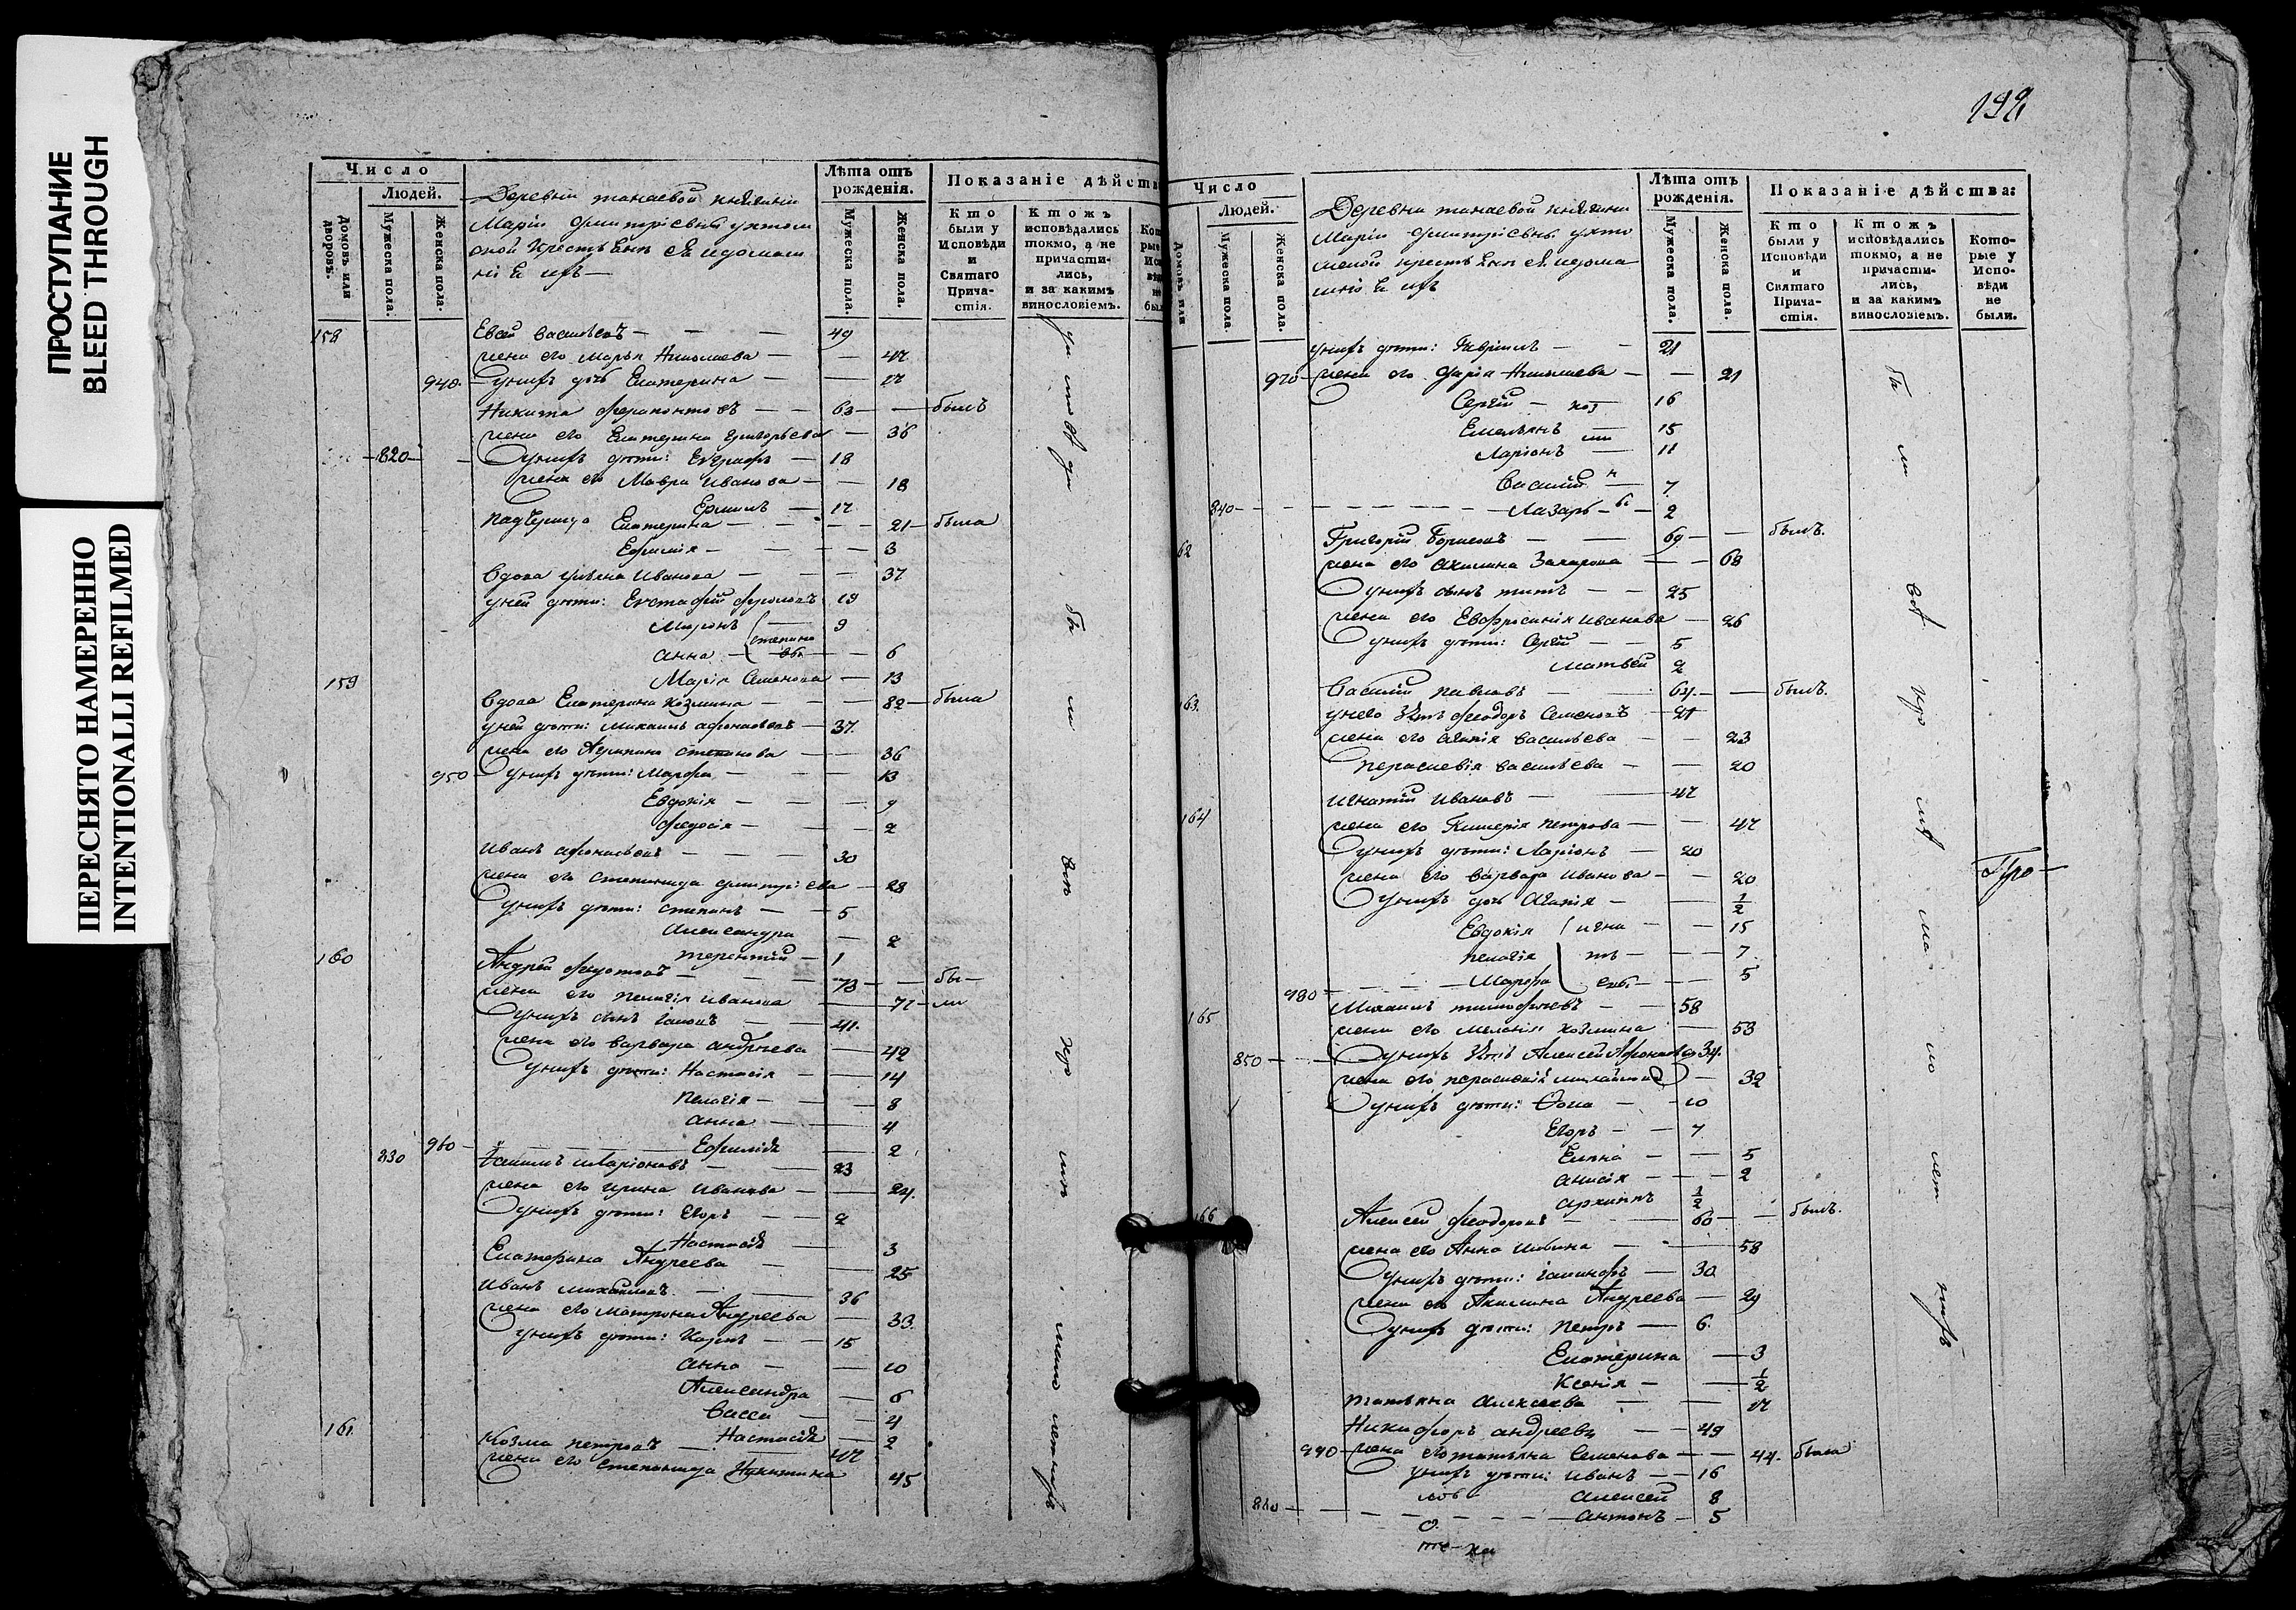 ПРОСТУПАНИЕ
BLEED THROUGH
ПЕРЕСНЯТО НАМЕРЕННО
INTENTIONALLI REFILMED
Число
Людей.
Домовъ или дворовъ.
Мужеска пола.
Женска пола.
Деревни танаевой княгини
Маріи дмитріевны ухтом
ской крестьяне
Лѣта отъ рожденія.
Мужеска пола.
Женска пола.
Показаніе дѣйств
Кто были у Исповѣди и Святаго Причастія.
Ктожъ исповѣдались токмо, а не причастились, и за какимъ винословіемъ.
158 Евсей васильевъ 49
жена его марья Николаева 47
940 у нихъ дочь Екатерина 17
Никита ферапонтовъ 63 былъ
жена его Екатерина григорьева 36
820 у нихъ дѣти: Евграфъ 18
жена его Мавра Иванова 18
Ермилъ 17
падчерица Екатерина 21 была
Ефимія 3
вдова ульяна Иванова 37
у ней дѣти: Евстафей фроловъ 19
Миронъ 9
степано
вы
анна 6
Марія Семенова 13
159 вдова Екатерина козмина 82 была
у ней дѣти: михаилъ афонасьевъ 37
жена его Агрипина степанова 36
950 у нихъ дѣти: Марфа 13
Евдокія 9
федосія 2
Иванъ афонасьевъ 30
жена его степанида дмитріева 28
у нихъ дѣти: степанъ 5
Александра 2
терентій 1
160 Андрей 73 бы
жена его пелагія иванова 71 ли
у нихъ сынъ 41
жена его варвара андреева 42
у нихъ дѣти: Настасія 14
пелагія 8
анна 4
960 Ефимія 2
830 Іакимъ иларіоновъ 23
жена его ирина Иванова 24
у нихъ дѣти: Егоръ 2
Настасія 3
Екатерина Андреева 25
Иванъ михайловъ 36
жена его матрона Андреева 33
у нихъ дѣти: Карпъ 15
анна 10
Александра 6
Васса 4
Настасія 2
161 козма петровъ 47
жена его степанида Никитина 45
192
Число
Людей.
Домовъ или
Мужеска пола.
Женска пола.
Деревни танаевой княгини
Маріи дмитріевны ухто
мской крестьяне
Лѣта отъ рожденія.
Мужеска пола.
Женска пола.
Показаніе дѣйства:
Кто были у Исповѣди и Святаго Причастія.
Ктожъ исповѣдались токмо, а не причастились, и за какимъ винословіемъ.
Которые у Исповѣди не были.
у нихъ дѣти: Гавріилъ 21
970 жена его дарія Николаева 21
Сергей коз 16
Емельянъ ми 15
Ларіонъ 11
Василій н 7
840 Лазарь ы 2
62 Григорій борисовъ 69 былъ.
жена его акилина Захарова 68
у нихъ сынъ титъ 25
жена его Евфросинія иванова 26
у нихъ дѣти: Сергей 5
матвей 2
163. Василій павловъ 64 былъ.
у него зять феодоръ Семеновъ 21
жена его агапія васильева 23
параскевія васильева 20
164 игнатій Ивановъ 47
жена его Гликерія петрова 47
у нихъ дѣти: Ларіонъ 20
жена его варвара иванова 20
у нихъ дочь агапія 1/2
Евдокія игна 15
пелагія ть 7
980 Марфа евы 5
165 Михаилъ тимофеевъ 58
жена его меланія козмина 53
850 у нихъ зять Алексей Афонасьев 34
жена его параскевія михайлова 32
у нихъ дѣти: Фома 10
Егоръ 7
Елена 5
анисія 2
архиппъ 1/2
166 Алексей феодоровъ 60 былъ.
жена его Анна ильина 58
у нихъ дѣти: 30
жена его Акилина Андреева 29
у нихъ дѣти: петръ 6
Екатерина 3
Ксенія 1/2
татьяна алексеева 17
Никифоръ андреевъ 49
990 жена его татьяна Семенова 44 была
у нихъ дѣти: иванъ 16
алексей 8
860 антонъ 5